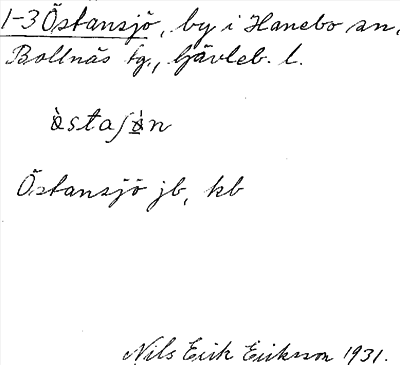 1-3 Östansjö, by i Hanebo sn,
Bollnäs tg., Gävleb. l.
Östansjö jb, kb
Nils Erik Eriksson 1931.